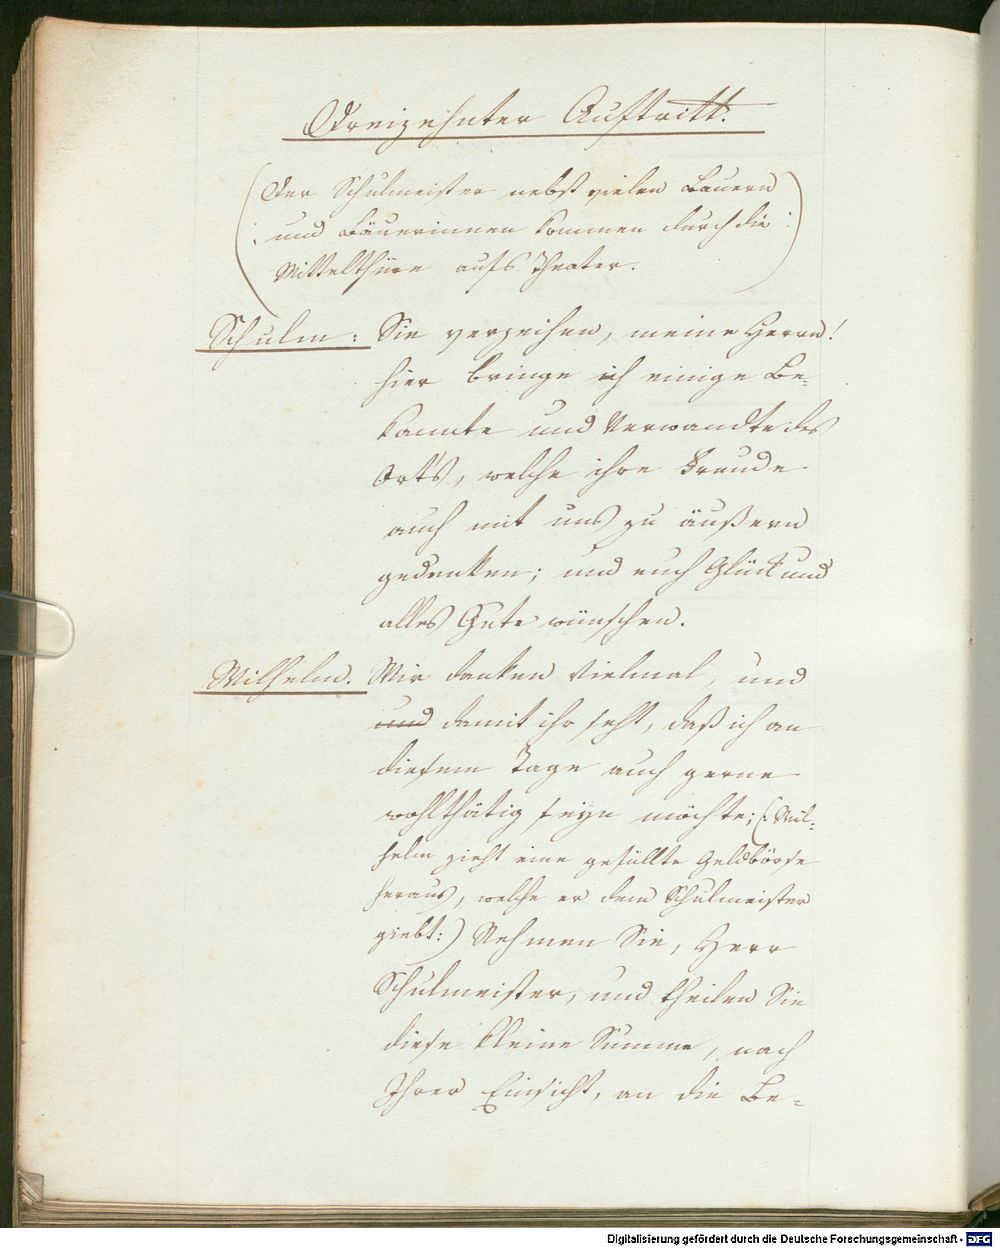 Dreizehnter Auftritt.
(Der Schulmeister nebst vielen Bauern
: und Bäuerinnen kommen durch die :
Mittelthüre aufs Theater.)
Schulm: Sie verzeihen, meine Herrn!
hier bringe ich einige Be-
kannte und Verwandte des
Orts, welche ihre Freude
auch mit uns zu äußern
gedenken; und euch Glück und
alles Gute wünschen.
Wilhelm. Wir danken vielmal, und
und damit ihr seht, daß ich an
diesem Tage auch gerne
wohlthätig seyn möchte; (: Wil-
helm zieht eine gefüllte Geldbörse
heraus, welche er dem Schulmeister
giebt:) Nehmen Sie, Herr
Schulmeister, und theilen Sie
diese kleine Summe, nach
Ihrer Einsicht, an die Be-
Digitalisierung gefördert durch die Deutsche Forschungsgemeinschaft - DFG